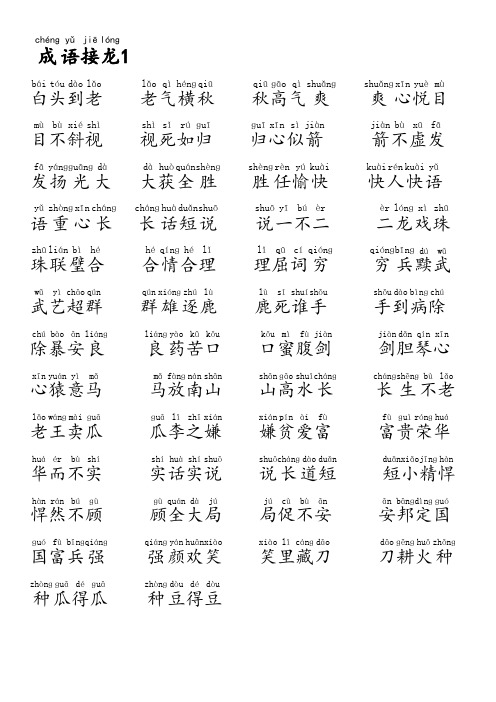 chéng yǔ jiē lóng
成语接龙1
bái tóu dào lǎo lǎo qì héng qiū qiū gāo qì shuǎng shuǎng xīn yuè mù
白头到老 老气横秋 秋高气爽 爽心悦目
mù bù xié shì shì sǐ rú guī guī xīn sì jiàn jiàn bù xū fā
目不斜视 视死如归 归心似箭 箭不虚发
fā yáng guāng dà dà huò quán shèng shèng rèn yú kuài kuài rén kuài yǔ
发扬光大 大获全胜 胜任愉快 快人快语
yǔ zhòng xīn cháng cháng huà duǎn shuō shuō yī bú èr èr lóng xì zhū
语重心长 长话短说 说一不二 二龙戏珠
zhū lián bì hé hé qíng hé lǐ lǐ qū cí qióng qióng bīng dú wǔ
珠联璧合 合情合理 理屈词穷 穷兵黩武
wǔ yì chāo qún qún xióng zhú lù lù sǐ shuí shǒu shǒu dào bìng chú
武艺超群 群雄逐鹿 鹿死谁手 手到病除
chú bào ān liáng liáng yào kǔ kǒu kǒu mì fù jiàn jiàn dǎn qín xīn
除暴安良 良药苦口 口蜜腹剑 剑胆琴心
xīn yuán yì mǎ mǎ fàng nán shān shān gāo shuǐ cháng cháng shēng bù lǎo
心猿意马 马放南山 山高水长 长生不老
lǎo wáng mài guā guā lǐ zhī xián xián pín ài fù fù guì róng huá
老王卖瓜 瓜李之嫌 嫌贫爱富 富贵荣华
huá ér bù shí shí huà shí shuō shuō cháng dào duǎn duǎn xiǎo jīng hàn
华而不实 实话实说 说长道短 短小精悍
hàn rán bú gù gù quán dà jú jú cù bù ān ān bāng dìng guó
悍然不顾 顾全大局 局促不安 安邦定国
guó fù bīng qiáng qiáng yán huān xiào xiào lǐ cáng dāo dāo gēng huǒ zhòng
国富兵强 强颜欢笑 笑里藏刀 刀耕火种
zhòng guā dé guā zhòng dòu dé dòu
种瓜得瓜 种豆得豆